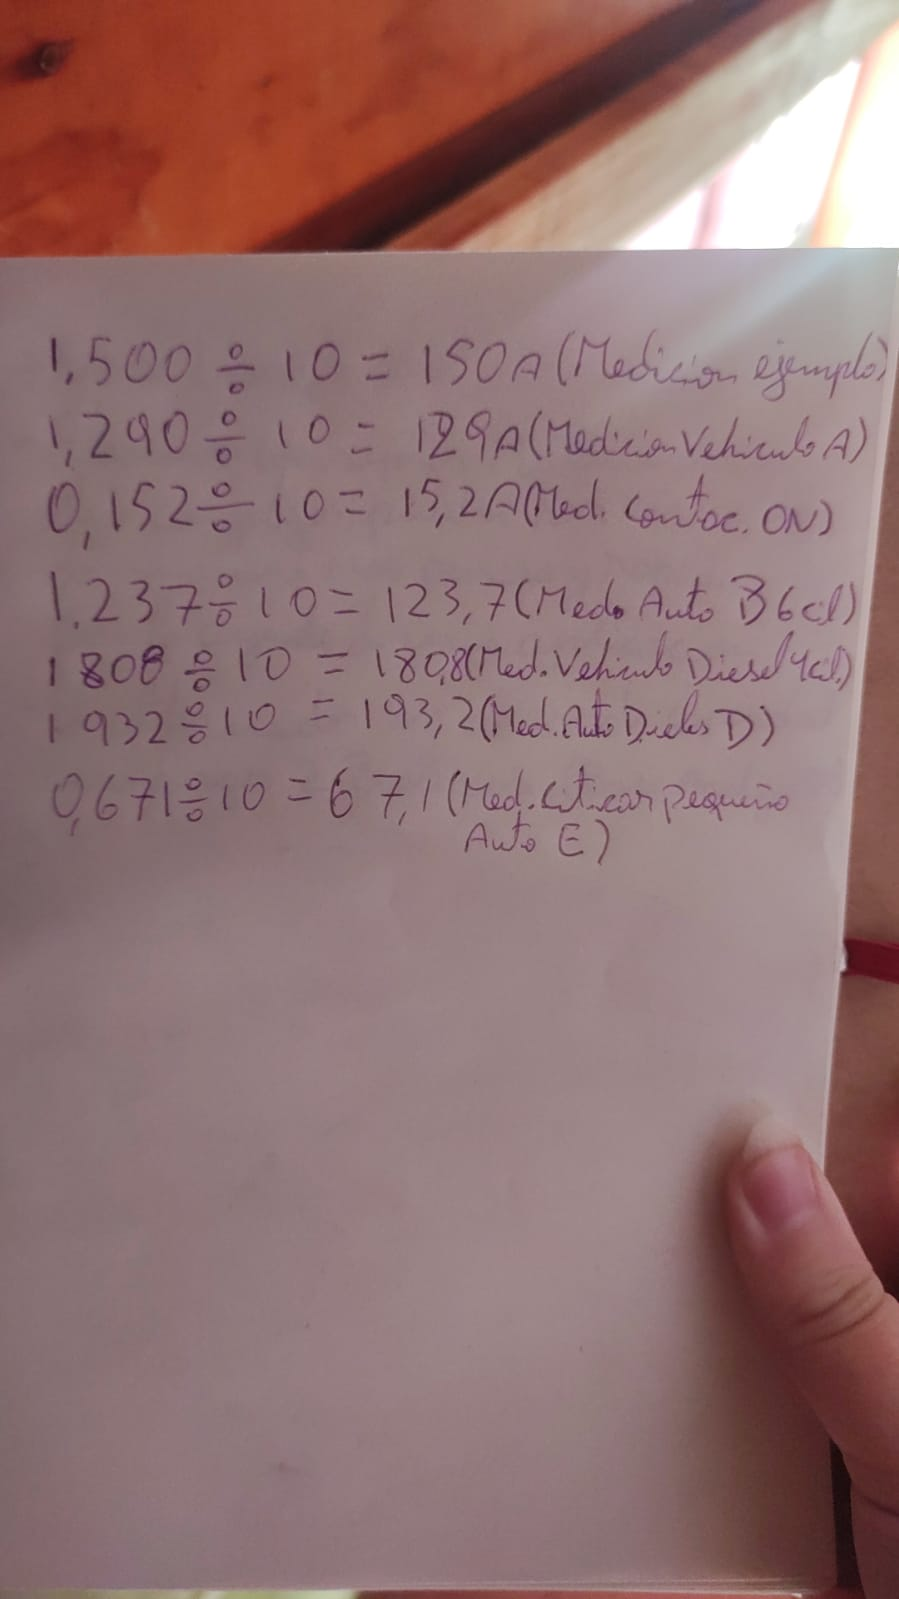 1,500 ÷ 10 = 150A (Medicion ejemplo)
1,290 ÷ 10 = 129A (Medicion Vehiculo A)
0,152 ÷ 10 = 15,2A (Med. Contac. ON)
1.237 ÷ 10 = 123,7 (Med. Auto B 6cil)
1808 ÷ 10 = 180,8 (Med. Vehiculo Diesel 4cil.)
1932 ÷ 10 = 193,2 (Med. Auto Dieles D)
0,671 ÷ 10 = 67,1 (Med. Citicar pequeño
Auto E)